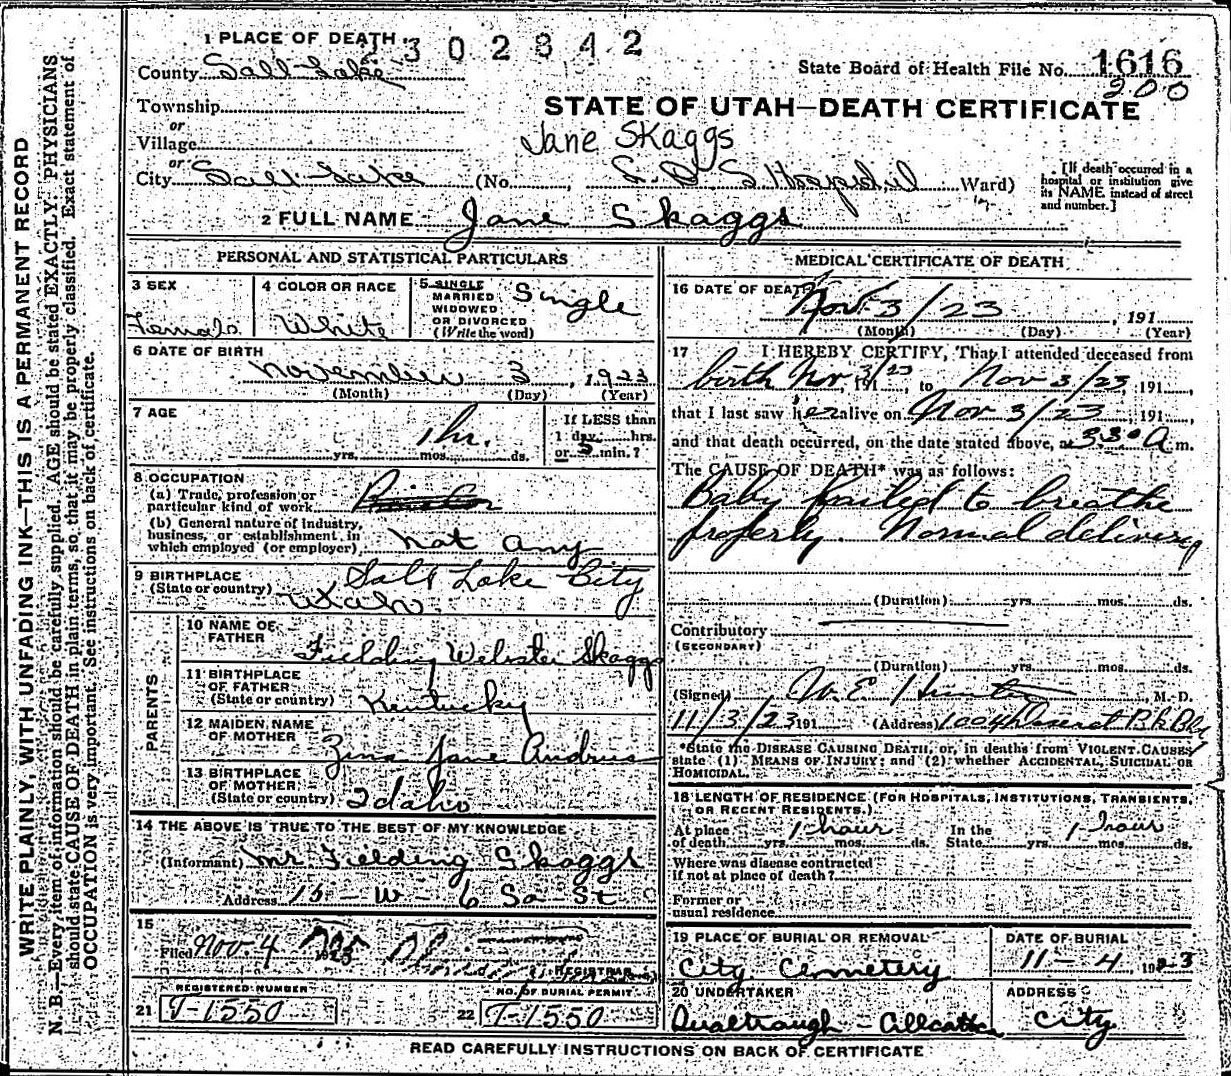 1 PLACE OF DEATH
302842
County Salt Lake
State Board of Health File No. 1616
200
Township
or
STATE OF UTAH—DEATH CERTIFICATE
Village
Jane Skaggs
or
City Salt Lake (No. L. D. S. Hospital Ward)
[If death occurred in a hospital or institution give its NAME instead of street and number.]
2 FULL NAME Jane Skaggs
PERSONAL AND STATISTICAL PARTICULARS
3 SEX
Female
4 COLOR OR RACE
White
5 SINGLE
MARRIED
WIDOWED
OR DIVORCED
(Write the word)
Single
6 DATE OF BIRTH
November 3, 1923
(Month) (Day) (Year)
7 AGE
1 hr.
yrs. mos. ds.
If LESS than
1 day, hrs.
or min.?
8 OCCUPATION
(a) Trade, profession or
particular kind of work
(b) General nature of industry,
business, or establishment in
which employed (or employer)
not any
9 BIRTHPLACE
(State or country)
Salt Lake City
Utah.
PARENTS
10 NAME OF
FATHER
Fielding Webster Skaggs
11 BIRTHPLACE
OF FATHER
(State or country)
Kentucky
12 MAIDEN NAME
OF MOTHER
Zina Jane Andrus
13 BIRTHPLACE
OF MOTHER
(State or country)
Idaho
14 THE ABOVE IS TRUE TO THE BEST OF MY KNOWLEDGE
(Informant) Mr. Fielding Skaggs
Address 15 - W - 6 So - St
15
Filed Nov. 4
REGISTRAR
REGISTERED NUMBER
21 T-1550
NO. OF BURIAL PERMIT
22 T-1550
MEDICAL CERTIFICATE OF DEATH
16 DATE OF DEATH
Nov. 3/23, 191
(Month) (Day) (Year)
17 I HEREBY CERTIFY, That I attended deceased from
birth Nov 3/23 191, to Nov 3/23, 191,
that I last saw her alive on Nov 3/23, 191,
and that death occurred, on the date stated above, at 3:30 A m.
The CAUSE OF DEATH* was as follows:
Baby failed to breathe
properly. Normal delivery
(Duration) yrs. mos. ds.
Contributory
(SECONDARY)
(Duration) yrs. mos. ds.
(Signed) M. D.
11/3/23 191 (Address) 1004 Deseret Bk Bld
*State the DISEASE CAUSING DEATH, or, in deaths from VIOLENT CAUSES,
state (1) MEANS OF INJURY; and (2) whether ACCIDENTAL, SUICIDAL OR
HOMICIDAL.
18 LENGTH OF RESIDENCE (FOR HOSPITALS, INSTITUTIONS, TRANSIENTS,
OR RECENT RESIDENTS.)
At place
of death yrs. 1 hour mos. ds.
In the
State yrs. 1 hour mos. ds.
Where was disease contracted
If not at place of death?
Former or
usual residence
19 PLACE OF BURIAL OR REMOVAL
City Cemetery
DATE OF BURIAL
11 - 4, 1923
20 UNDERTAKER
ADDRESS
City
READ CAREFULLY INSTRUCTIONS ON BACK OF CERTIFICATE
WRITE PLAINLY, WITH UNFADING INK—THIS IS A PERMANENT RECORD
N. B.—Every item of information should be carefully supplied. AGE should be stated EXACTLY. PHYSICIANS
should state CAUSE OF DEATH in plain terms, so that it may be properly classified. Exact statement of
OCCUPATION is very important. See instructions on back of certificate.